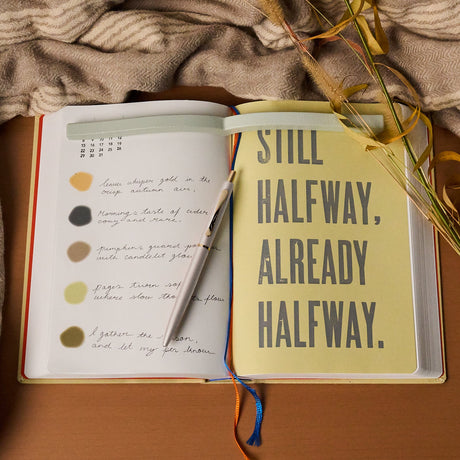 15 16 17 18
22 23 24 25
29 30 31
leaves whisper gold in the
crisp autumn air,
Mornings taste of cider
cozy and rare.
pumpkins guard porches
with candlelit glow
pages turn
where slow flow
I gather the
and let my pen know
STILL
HALFWAY,
ALREADY
HALFWAY.